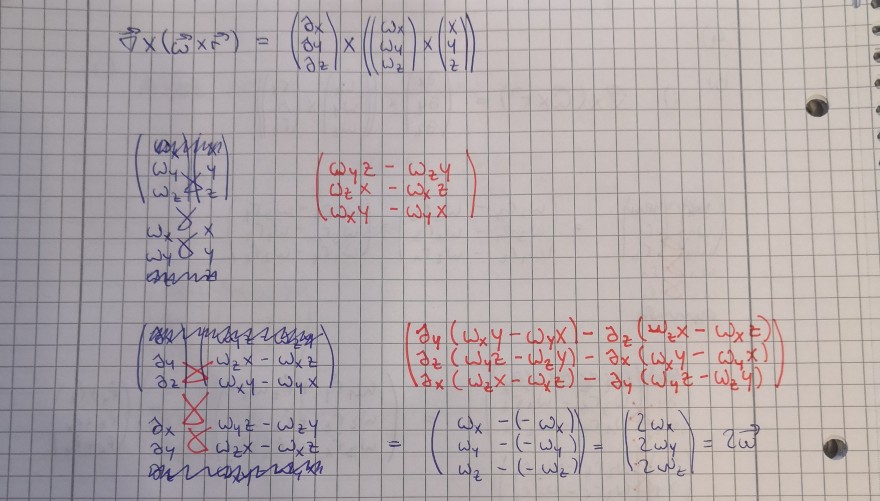 ∇⃗ × (ω⃗ × r⃗) = (∂x ∂y ∂z) × ((ωx ωy ωz) × (x y z))
ωy y
ωz z
ωx x
ωy y
ωyz − ωzy
ωzx − ωxz
ωxy − ωyx
∂y ωzx − ωxz
∂z ωxy − ωyx
∂x ωyz − ωzy
∂y ωzx − ωxz
∂y (ωxy − ωyx) − ∂z (ωzx − ωxz)
∂z (ωyz − ωzy) − ∂x (ωxy − ωyx)
∂x (ωzx − ωxz) − ∂y (ωyz − ωzy)
= (ωx − (− ωx) ωy − (− ωy) ωz − (− ωz)) = (2ωx 2ωy 2ωz) = 2ω⃗